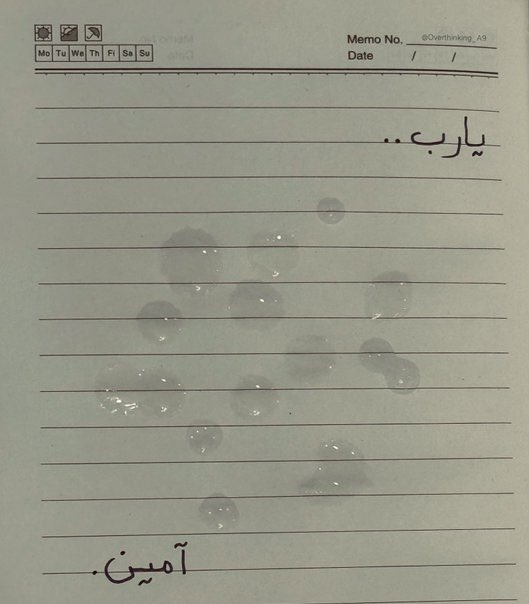 Memo No. @Overthinking_A9
Mo Tu We Th Fi Sa Su
Date / /
يارب..
آمين.